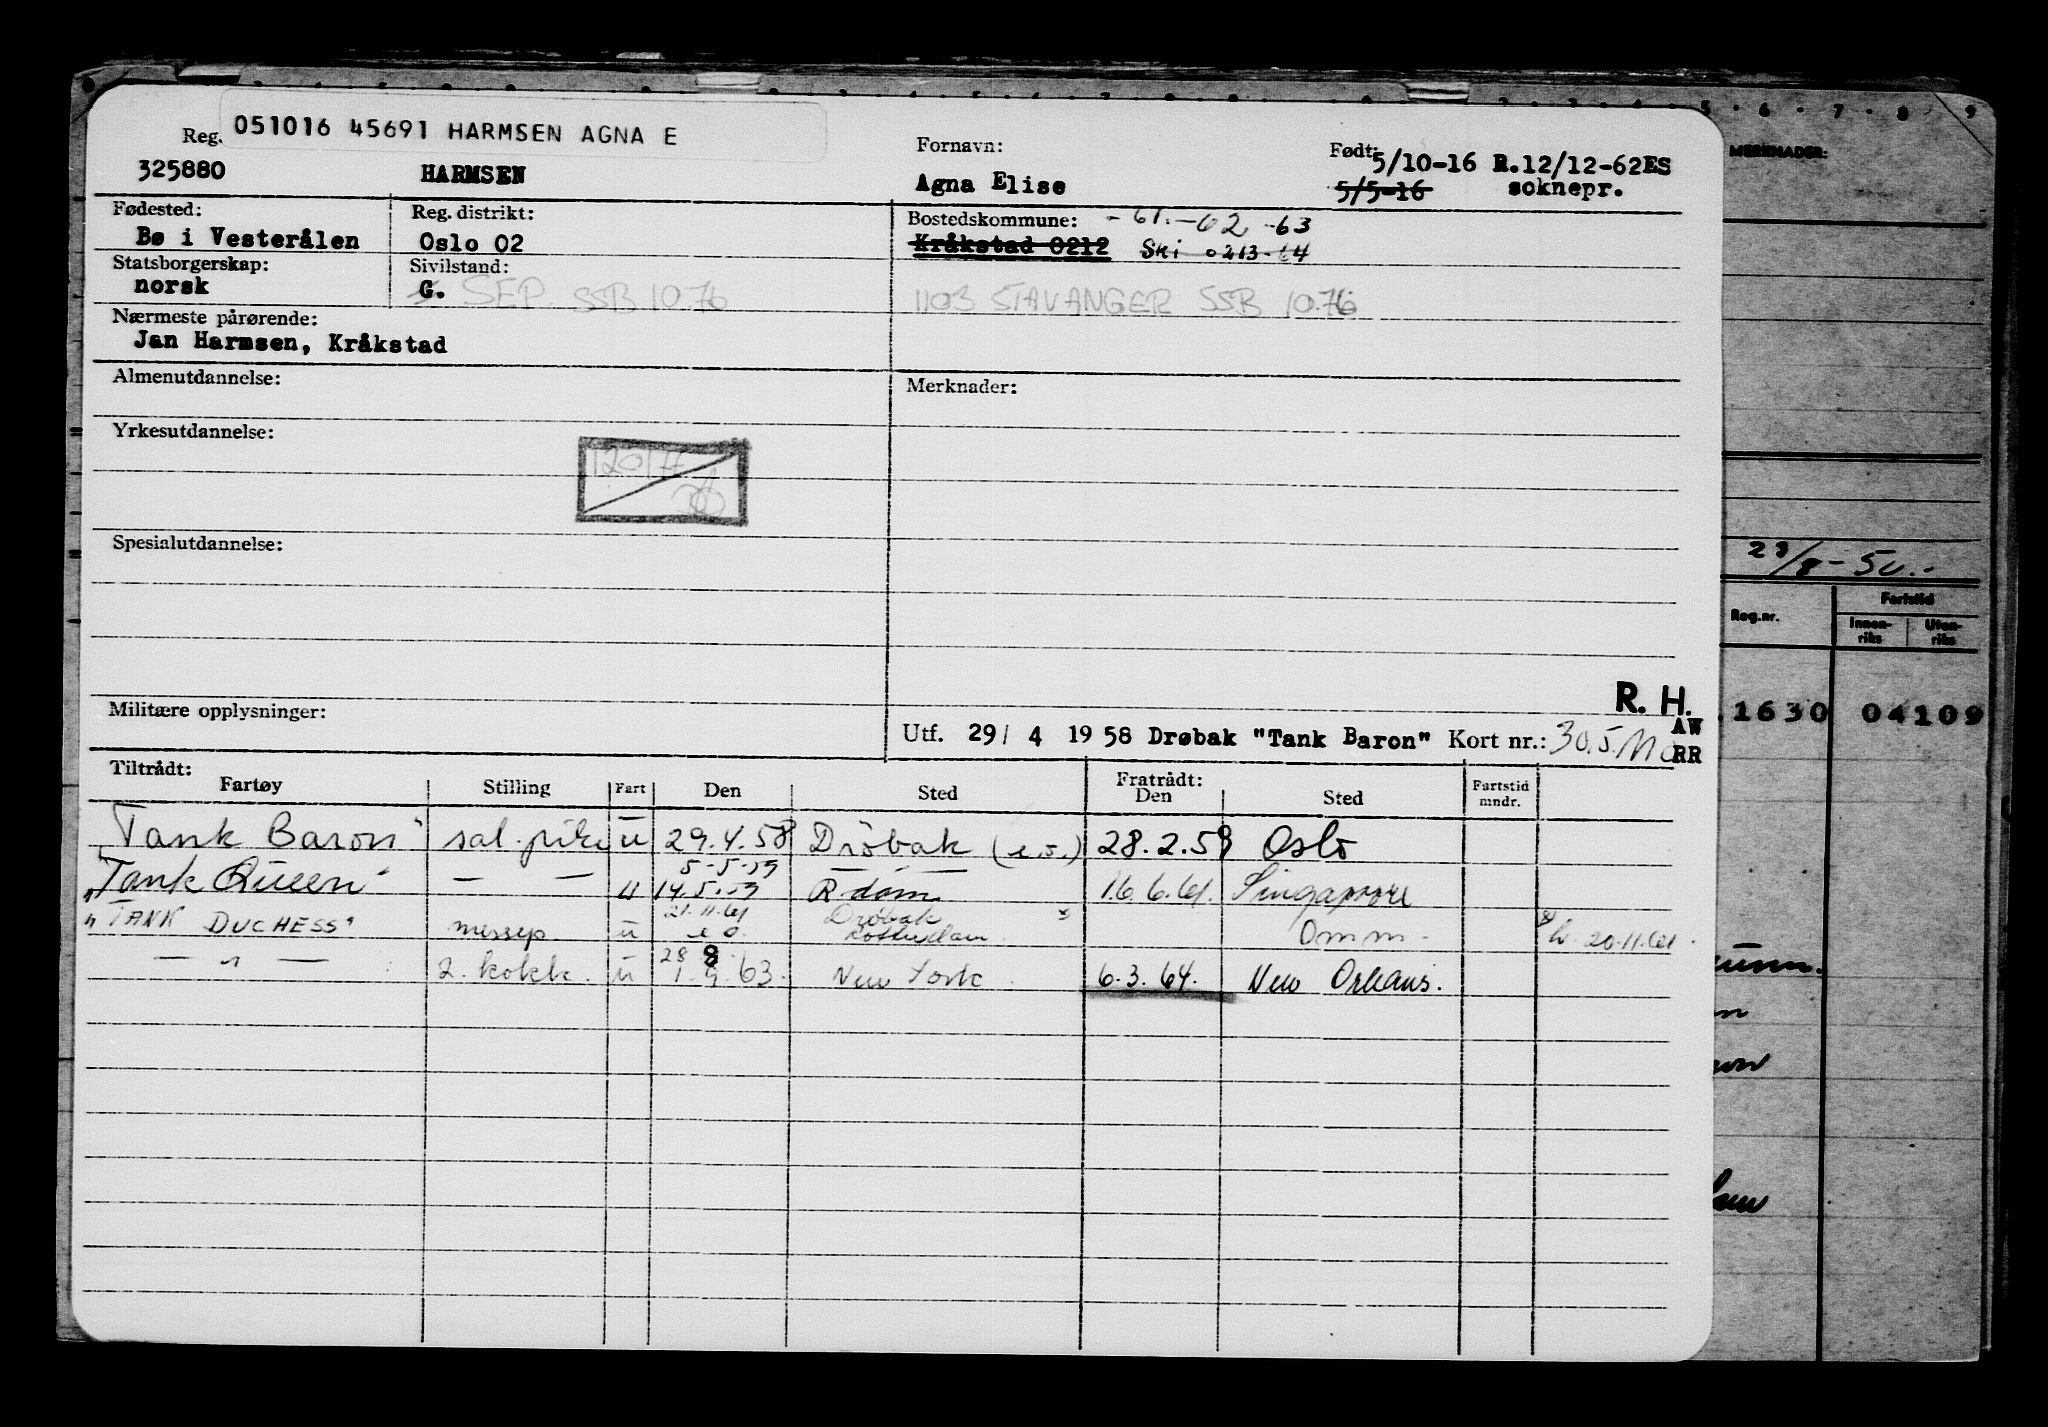 051016 45691 HARMSEN AGNA E
Reg. Fornavn: Født: 5/10-16 R.12/12-62ES
325880 HARMSEN Agna Elise 5/5-16 soknepr.
Fødested: Reg. distrikt: Bostedskommune: -61.-62-63
Bø i Vesterålen Oslo 02 Kråkstad 0212 Ski 0213-64
Statsborgerskap: Sivilstand:
norsk G. SEP. SSB 10.76 1103 STAVANGER SSB 10.76
Nærmeste pårørende:
Jan Harmsen, Kråkstad
Almenutdannelse: Merknader:
Yrkesutdannelse:
Spesialutdannelse:
R. H.
Militære opplysninger:
AW
Utf. 29/ 4 1958 Drøbak "Tank Baron" Kort nr.: 30.5. RR
Tiltrådt: Fratrådt:
Fartøy Stilling Fart Den Sted Den Sted Fartstid mndr.
Tank Baron" sal.pike u 29.4.58 Drøbak (e.o.) 28.2.59 Oslo
5-5-59
"Tank Queen" — — u 14.5.59 R-dam 16.6.61. Singapore
21.11.61 Drøbak x
"TANK DUCHESS" messep. u e o. Rotterdam Omm. x) 20.11.61.
28 8
— " — 2. kokk. u 1.9.63. New York 6.3.64. New Orleans.
MERKNADER:
29/8-50.-
Reg.nr. Fartstid
Innen-riks Uten-riks
1630 04109